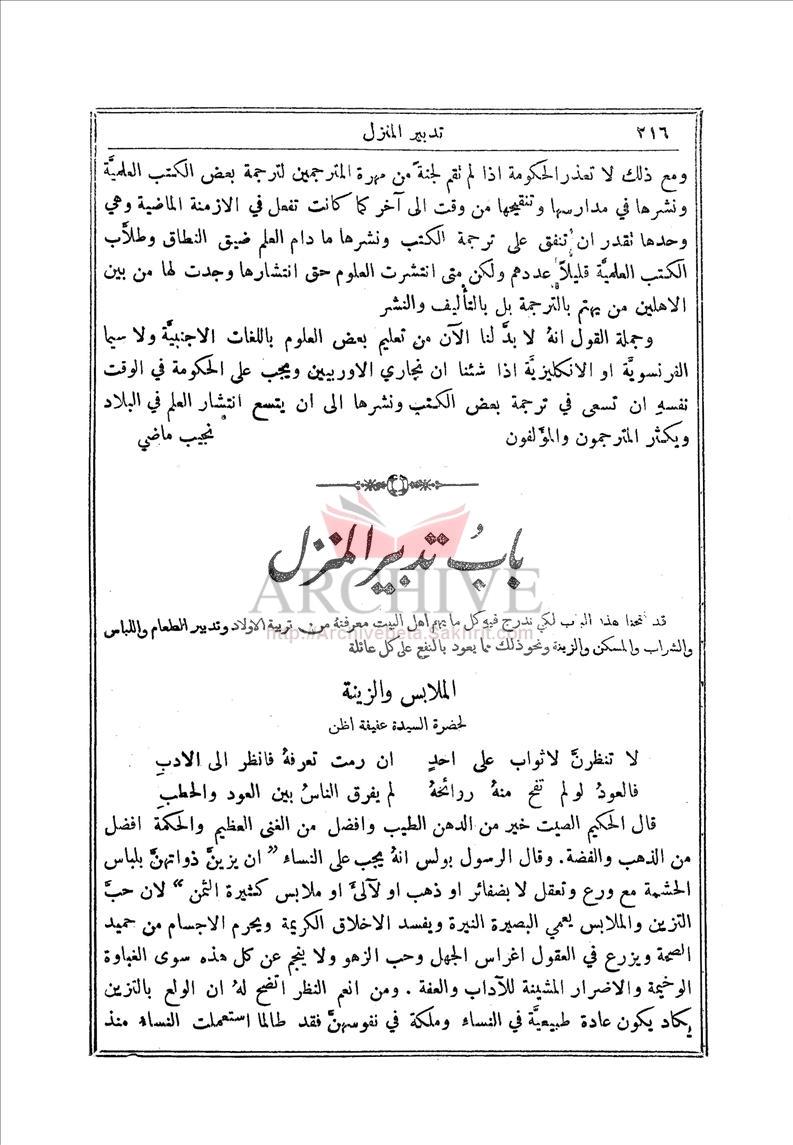 ٢١٦
تدبير المنزل
ومع ذلك لا تعذر الحكومة اذا لم تقم لجنة من مهرة المترجمين لترجمة بعض الكتب العلميَّة
ونشرها في مدارسها وتنقيحها من وقت الى آخر كما كانت تفعل في الازمنة الماضية وهي
وحدها تقدر ان تنفق على ترجمة الكتب ونشرها ما دام العلم ضيق النطاق وطلَّاب
الكتب العلميَّة قليلاً عددهم ولكن متى انتشرت العلوم حق انتشارها وجدت لها من بين
الاهلين من يهتم بالترجمة بل بالتأليف والنشر
وجملة القول انهُ لا بدَّ لنا الآن من تعليم بعض العلوم باللغات الاجنبيَّة ولا سيما
الفرنسويَّة او الانكليزيَّة اذا شئنا ان نجاري الاوربيين ويجب على الحكومة في الوقت
نفسهِ ان تسعى في ترجمة بعض الكتب ونشرها الى ان يتسع انتشار العلم في البلاد
ويكثر المترجمون والمؤلفون نجيب ماضي
بابُ تدبير المنزل
ARCHIVE
http://Archivebeta.Sakhrit.com
قد فتحنا هذا الباب لكي ندرج فيه كل ما يهم اهل البيت معرفتهُ من تربية الاولاد وتدبير الطعام واللباس
والشراب والمسكن والزينة ونحو ذلك مما يعود بالنفع على كل عائلة
الملابس والزينة
لحضرة السيدة عفيفة اظن
لا تنظرنَّ لاثواب على احدٍ ان رمت تعرفهُ فانظر الى الادبِ
فالعودُ لو لم تفح منهُ روائحهُ لم يفرق الناسُ بين العود والحطبِ
قال الحكيم الصيت خير من الدهن الطيب وافضل من الغنى العظيم والحكمة افضل
من الذهب والفضة. وقال الرسول بولس انهُ يجب على النساء "ان يزينَّ ذواتهنَّ بلباس
الحشمة مع ورع وتعقل لا بضفائر او ذهب او لآلئ او ملابس كثيرة الثمن" لان حبَّ
التزين والملابس يعمي البصيرة النيرة ويفسد الاخلاق الكريمة ويحرم الاجسام من حميد
الصحة ويزرع في العقول اغراس الجهل وحب الزهو ولا ينجم عن كل هذه سوى الغباوة
الوخيمة والاضرار المشينة للآداب والعفة. ومن انعم النظر اتضح لهُ ان الولع بالتزين
يكاد يكون عادة طبيعيَّة في النساء وملكة في نفوسهنَّ فقد طالما استعملت النساء منذ